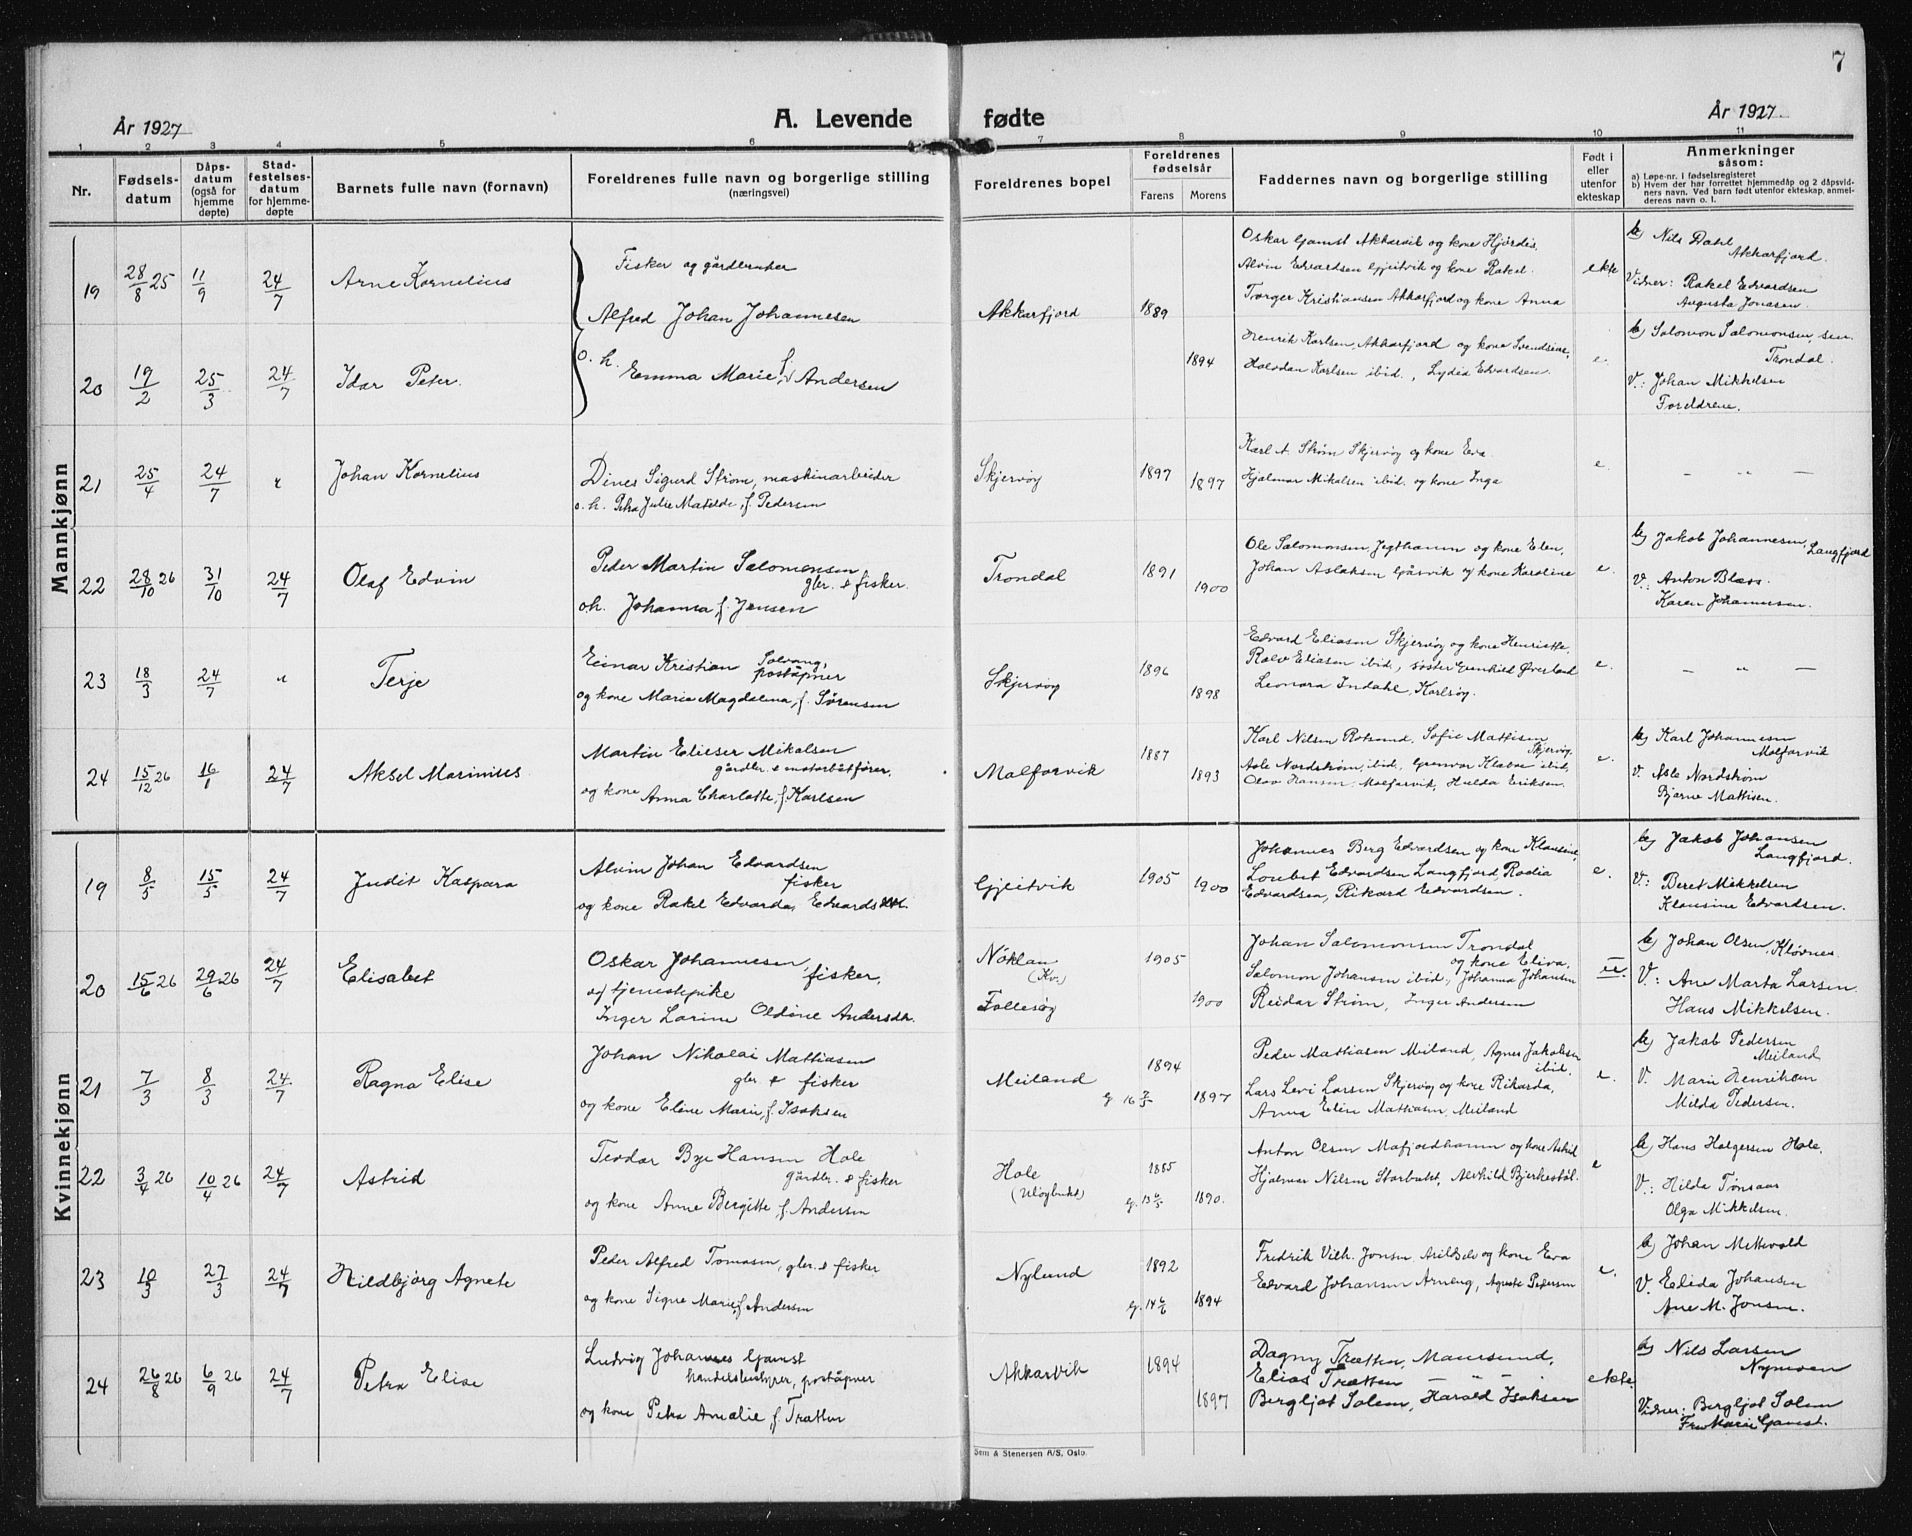 7
År 1927
A. Levende fødte
År 1927.
1 2 3 4 5 6 7 8 9 10 11
Nr.
Fødsels-
datum
Dåps-
datum
(også for
hjemme
døpte)
Stad-
festelses-
datum
for hjemme-
døpte
Barnets fulle navn (fornavn)
Foreldrenes fulle navn og borgerlige stilling
(næringsvei)
Foreldrenes bopel
Foreldrenes
fødselsår
Farens Morens
Faddernes navn og borgerlige stilling
Født i
eller
utenfor
ekteskap
Anmerkninger
såsom:
a) Løpe-nr. i fødselsregisteret
b) Hvem der har forrettet hjemmedåp og 2 dåpsvid-
ners navn. Ved barn født utenfor ekteskap, anmel-
derens navn o. l.
Mannkjønn
19 28/8 25 11/9 24/7 Arne Kornelius
Fisker og gårdbruker
Alfred Johan Johannesen
Akkarfjord 1889
Oskar Gamst Akkarvik og kone Hjørdis,
Alvin Edvardsen Gjeitvik og kone Rakel.
Torger Kristiansen Akkarfjord og kone Anna
ekte
b) Nils Dahl
Akkarfjord.
Vidner: Rakel Edvardsen
Augusta Jonasen.
20 19/2 25/3 24/7 Idar Peter.
o. h. Emma Marie f. Andersen
1894
Henrik Karlsen, Akkarfjord og kone Svendsine,
Halvdan Karlsen ibid., Lydia Edvardsen.
e.
b) Salomon Salomonsen, sen.
Trondal.
V.: Johan Mikkelsen
Foreldrene.
21 25/4 24/7 " Johan Kornelius
Dines Sigurd Strøm, maskinarbeider
o. h. Petra Julie Matilde, f. Pedersen
Skjervøy 1897 1897
Karl A. Strøm Skjervøy og kone Eva
Hjalmar Mikalsen ibid. og kone Inga
e.
— " —
22 28/10 26 31/10 24/7 Olaf Edvin
Peder Martin Salomonsen
gbr. & fisker.
oh. Johanna f. Jensen
Trondal 1891 1900
Ole Salomonsen, Jegthamn og kone Elen,
Johan Aslaksen Gåsvik og kone Karoline
e.
b) Jakob Johannesen, Langfjord
V.: Anton Blæss.
Karen Johannesen.
23 18/3 24/7 " Terje
Einar Kristian Solvang,
poståpner
og kone Marie Magdalena, f. Sørensen
Skjervøy 1896 1898
Edvard Eliasen Skjervøy og kone Henriette,
Rolv Eliasen ibid., søster Gunhild Øverland
Leonora Indahl, Karlsøy.
e.
— " —
24 15/12 26 16/1 24/7 Aksel Marinius
Martin Elieser Mikalsen
gårdbr. & motorbåtfører,
og kone Anna Charlotte, f. Karlsen
Malfarvik 1887 1893
Karl Nilsen Rotsund, Sofie Mattisen
Skjervøy,
Asle Nordstrøm, ibid, Gunvor Klabo ibid,
Olav Hansen, Malfarvik, Hulda Eriksen.
e.
b) Karl Johannesen
Malfarvik
V. Asle Nordstrøm
Bjarne Mattisen.
Kvinnekjønn
19 8/5 15/5 24/7 Judit Kaspara
Alvin Johan Edvardsen
fisker
og kone Rakel Edvarda,
Gjeitvik 1905 1900
Johannes Berg Edvardsen og kone Klausine,
Loubet Edvardsen Langfjord, Rodia
Edvardsen, Rikard Edvardsen.
e.
b) Jakob Johansen
Langfjord.
V.: Beret Mikkelsen
Klausine Edvardsen.
20 15/6 26 29/6 26 24/7 Elisabet
Oskar Johannesen, fisker,
og tjenestepike
Inger Larine Oldine Andersdtr.
Nøklan
(Kv.)
Follesøy
1905 1900
Johan Salomonsen Trondal
og kone Eliva,
Salomon Johansen ibid., Johanna Johansen
Reidar Strøm, Inger Andersen
ue.
b) Johan Olsen, Kløvnes
V.: Ane Marta Larsen
Hans Mikkelsen.
21 7/3 8/3 24/7 Ragna Elise
Johan Nikolai Mattiasen
gbr. & fisker
og kone Eline Marie f. Isaksen
Meiland 1894
g. 16 2/5 1897
Peder Mattiasen Meiland, Agnes Jakobsen
ibid,
Lars Levi Larsen Skjervøy og kone Rikarda,
Anna Eline Mattiasen, Meiland
e.
b) Jakob Pedersen
Meiland
V. Marie Henriksen
Milda Pedersen.
22 3/4 26 10/4 26 24/7 Astrid
Teodor Bye Hansen Hole
gårdbr. & fisker
og kone Anne Bergitte f. Andersen
Hole
(Uløybukt)
1885
g. 13 6/5 1890.
Anton Olsen Mafjordhamn og kone Astrid
Hjalmar Nilsen Storbukt, Alvhild Bjerkestøl.
e
b) Hans Holgersen Hole,
V.: Hilda Tønsaas
Olga Mikkelsen.
23 10/3 27/3 24/7 Hildbjørg Agnete
Peder Alfred Tomasen, gbr. & fisker
og kone Signe Marie, f. Andersen
Nylund 1892
g. 14 6/6 1894
Fredrik Vilh. Jonsen og kone Eva
Edvard Johansen Arneng, Agnete Pedersen
e.
b) Johan Mettevold
V. Elida Johansen
Ane M. Jonsen.
24 26/8 26 6/9 26 24/7 Petra Elise
Ludvig Johannes Gamst
handelsbestyrer, poståpner
og kone Petra Amalie f. Trætten
Akkarvik 1894 1897
Dagny Trætten, Maursund,
Elias Trætten — " —
Bergljot Solem, Harald Isaksen
ekte.
b) Nils Larsen
Vidner: Bergljot Solem
Fru Marie Gamst.
Sem & Stenersen A/S, Oslo.